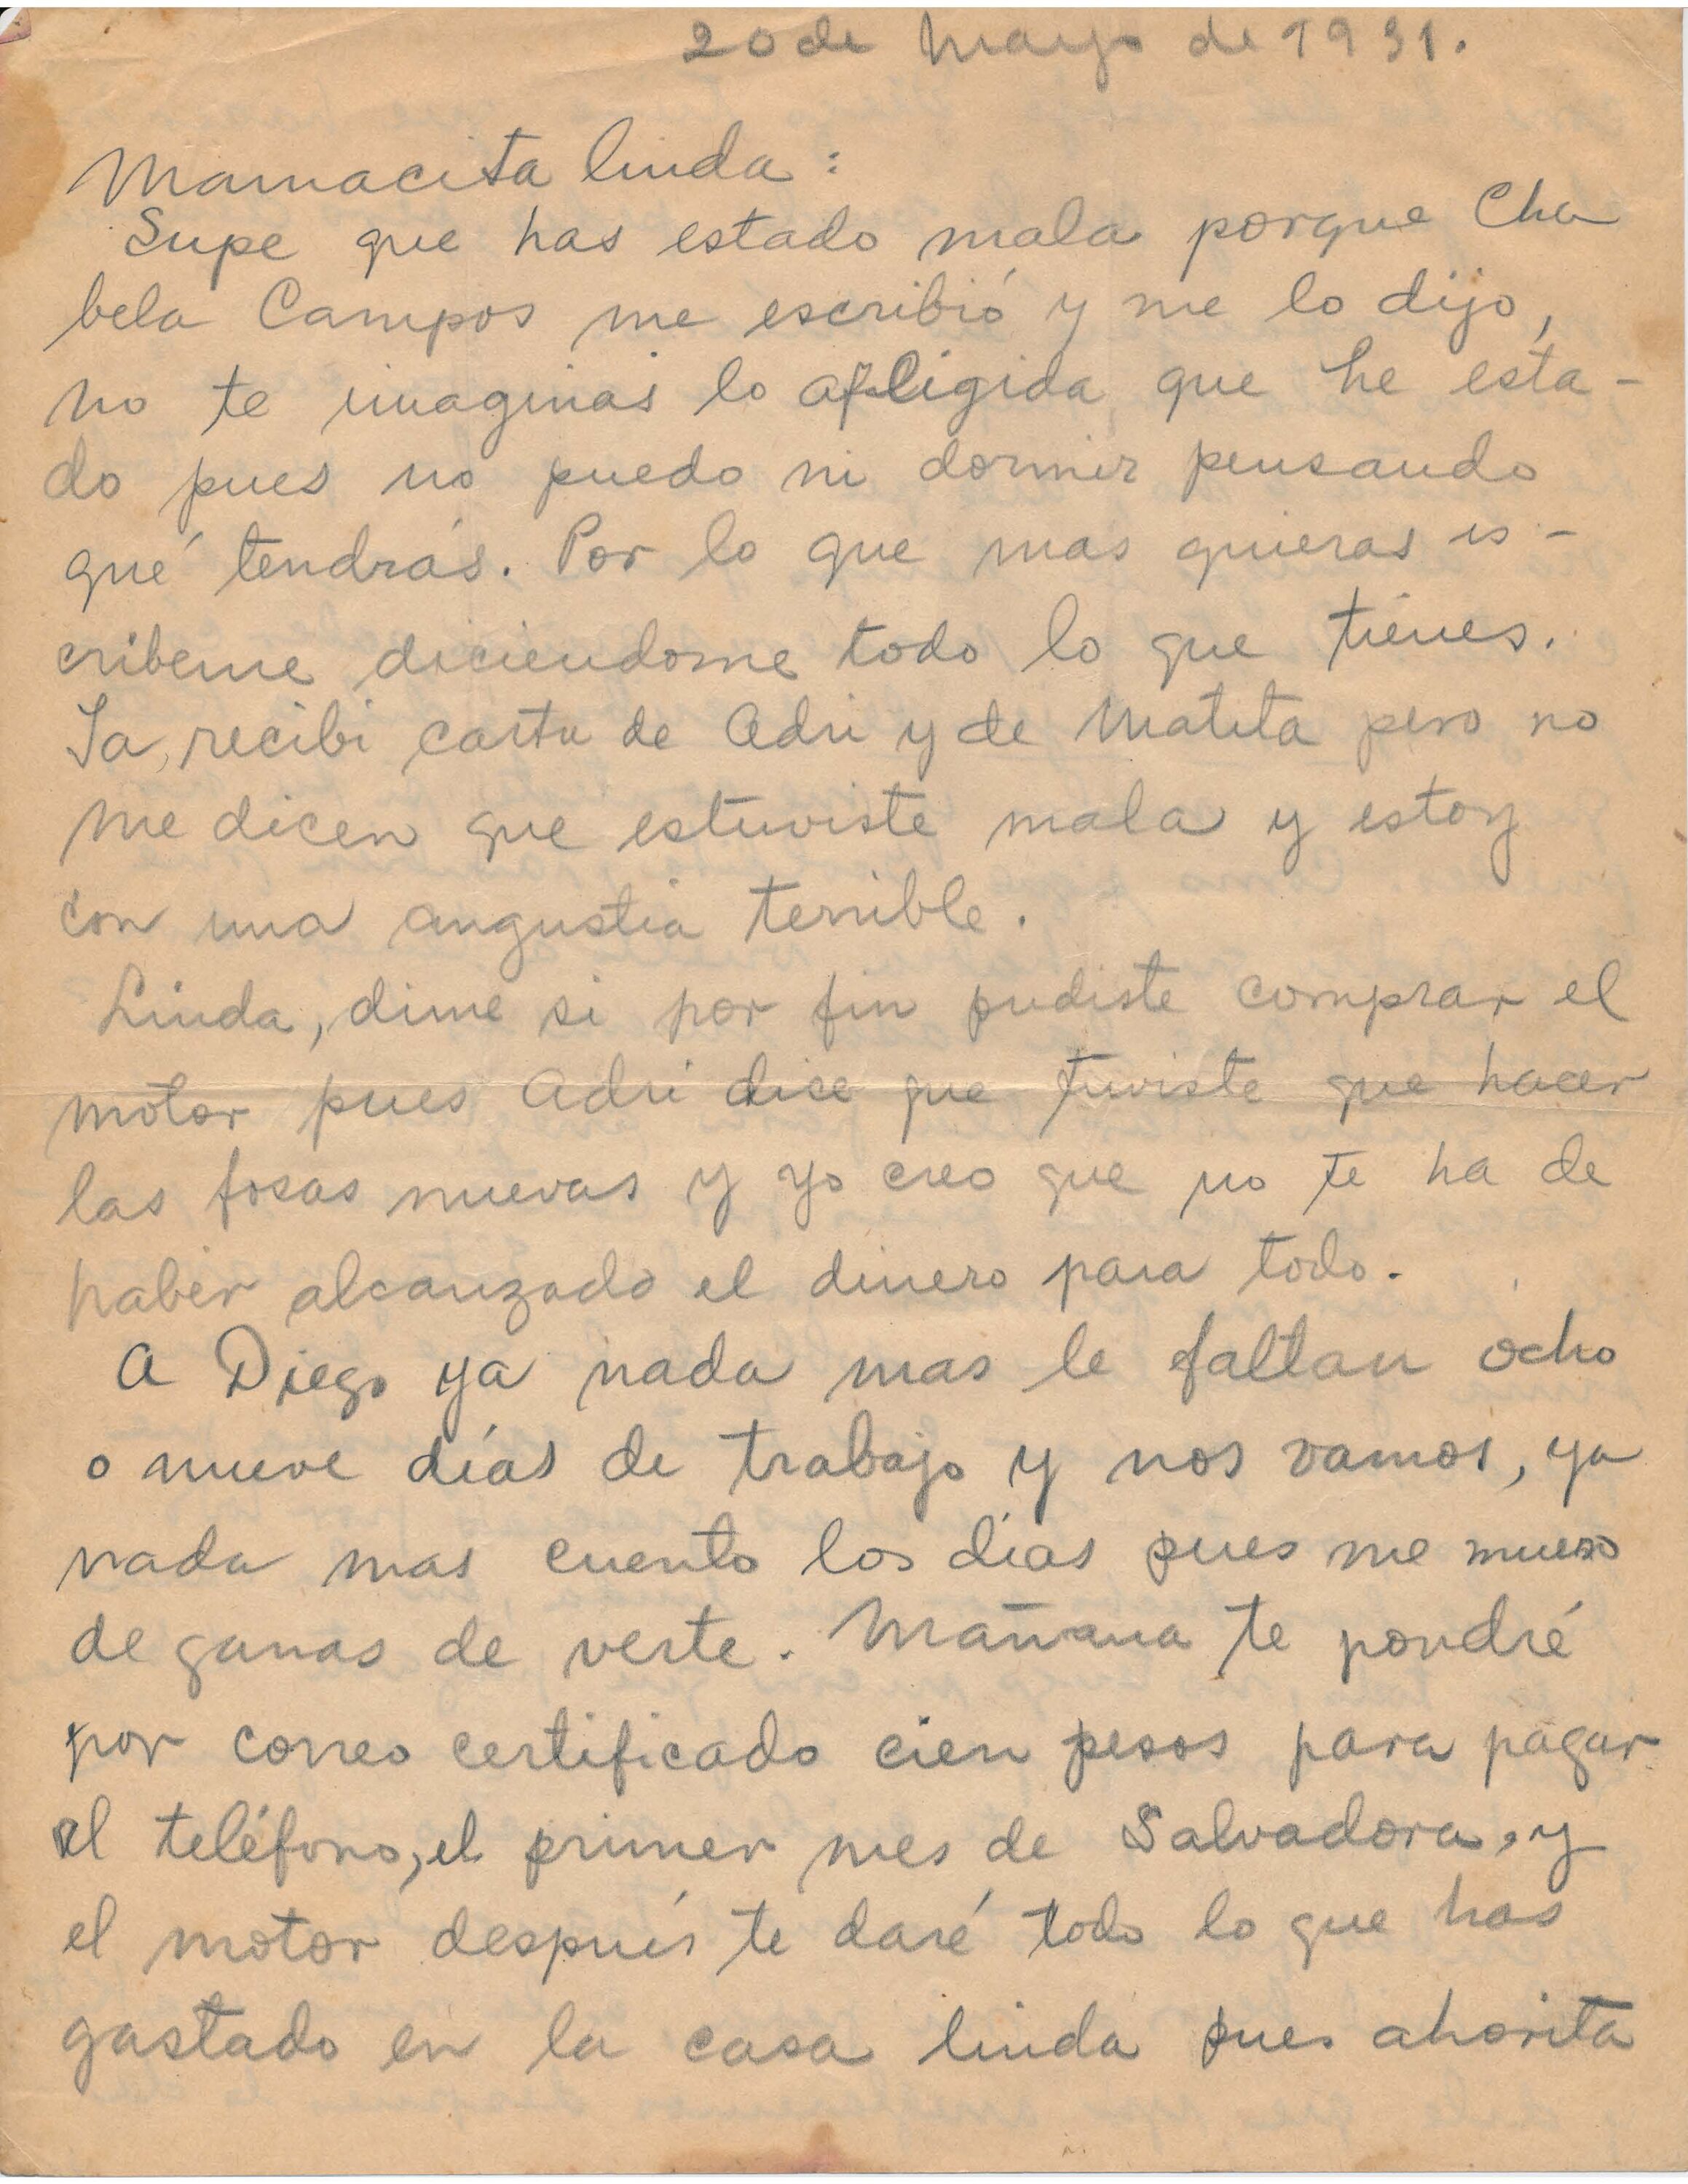 20 de Mayo de 1931.
Mamacita linda:
Supe que has estado mala porque Cha
bela Campos me escribió y me lo dijo,
no te imaginas lo afligida que he esta-
do pues no puedo ni dormir pensando
qué tendrás. Por lo que mas quieras es-
cribeme diciendome todo lo que tienes.
Ya, recibi carta de Adri y de Matita pero no
me dicen que estuviste mala y estoy
con una angustia terrible.
Linda, dime si por fin pudiste comprar el
motor pues Adri dice que tuviste que hacer
las fosas nuevas y yo creo que no te ha de
haber alcanzado el dinero para todo.
A Diego ya nada mas le faltan ocho
o nueve días de trabajo y nos vamos, ya
nada mas cuento los días pues me muero
de ganas de verte. Mañana te pondré
por correo certificado cien pesos para pagar
el teléfono, el primer mes de Salvadora, y
el motor después te daré todo lo que has
gastado en la casa linda pues ahorita